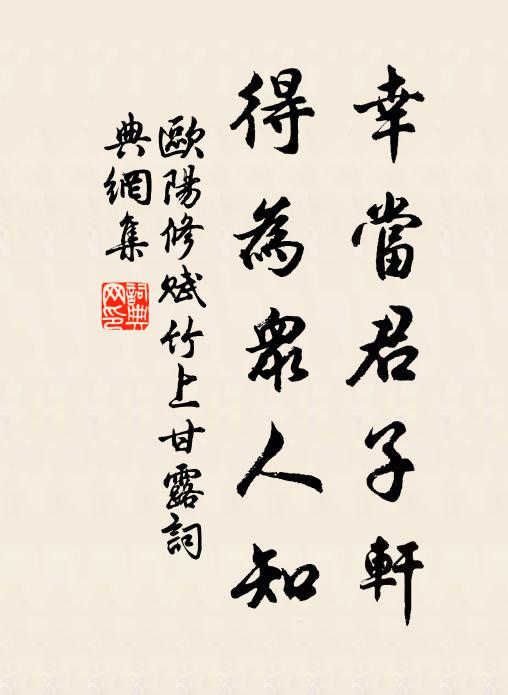 幸當君子軒
得為衆人知
歐陽修賦竹上甘露詞
典網集
詞典網印